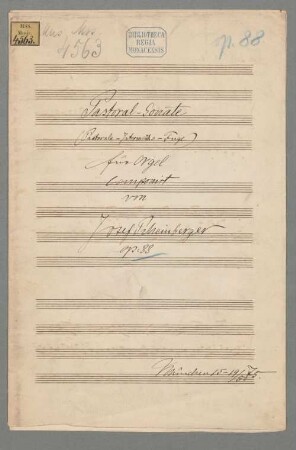 Mus. Mss.
4563
BIBLIOTHECA
REGIA
MONACENSIS.
p. 88
4563.
Pastoral-Sonate
(Pastorale - Intermezzo - Fuge)
für Orgel
componirt
von
Josef Rheinberger
op. 88.
München 15-19/